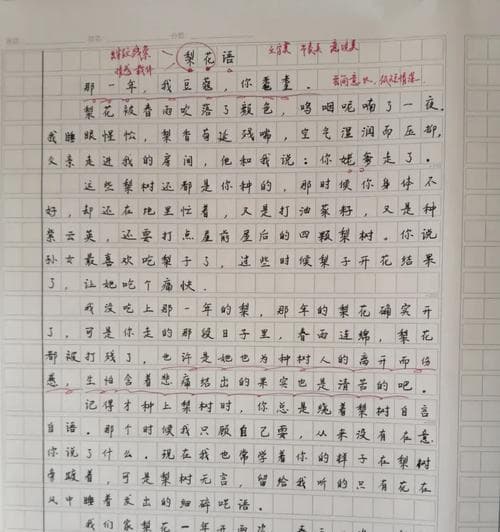 梨花语
那一年，我豆蔻，你耄耋。
梨花被春雨吹落了颜色，呜咽呢喃了一夜。
我睡眼惺忪，梨香萦延残喘，空气湿润而压抑，
父亲走进我的房间，他和我说：你姥爹走了。
这些梨树还都是你种的，那时候你身体不
好，却还在地里忙着，又是打油菜籽，又是种
紫云英，还要打点屋前屋后的四颗梨树。你说
孙女最喜欢吃梨子了，过些时候梨子开花结果
了，让她吃个痛快。
我没吃上那一年的梨，那年的梨花确实开
了，可是你走的那段日子里，春雨连绵，梨花
都被打残了，也许是她也为种树人的离开而伤
悲，生怕含着悲痛结出的果实也是清苦的吧。
记得才种上梨树时，你总是绕着梨树自言
自语。那个时候我只顾自己耍，从来没有在意
你说了什么。现在我也常学着你的样子在梨树
旁踱着，可是梨树无言，留给我听的只有花在
风中睡着发出的细碎呢语。
我们家梨花一年开两次